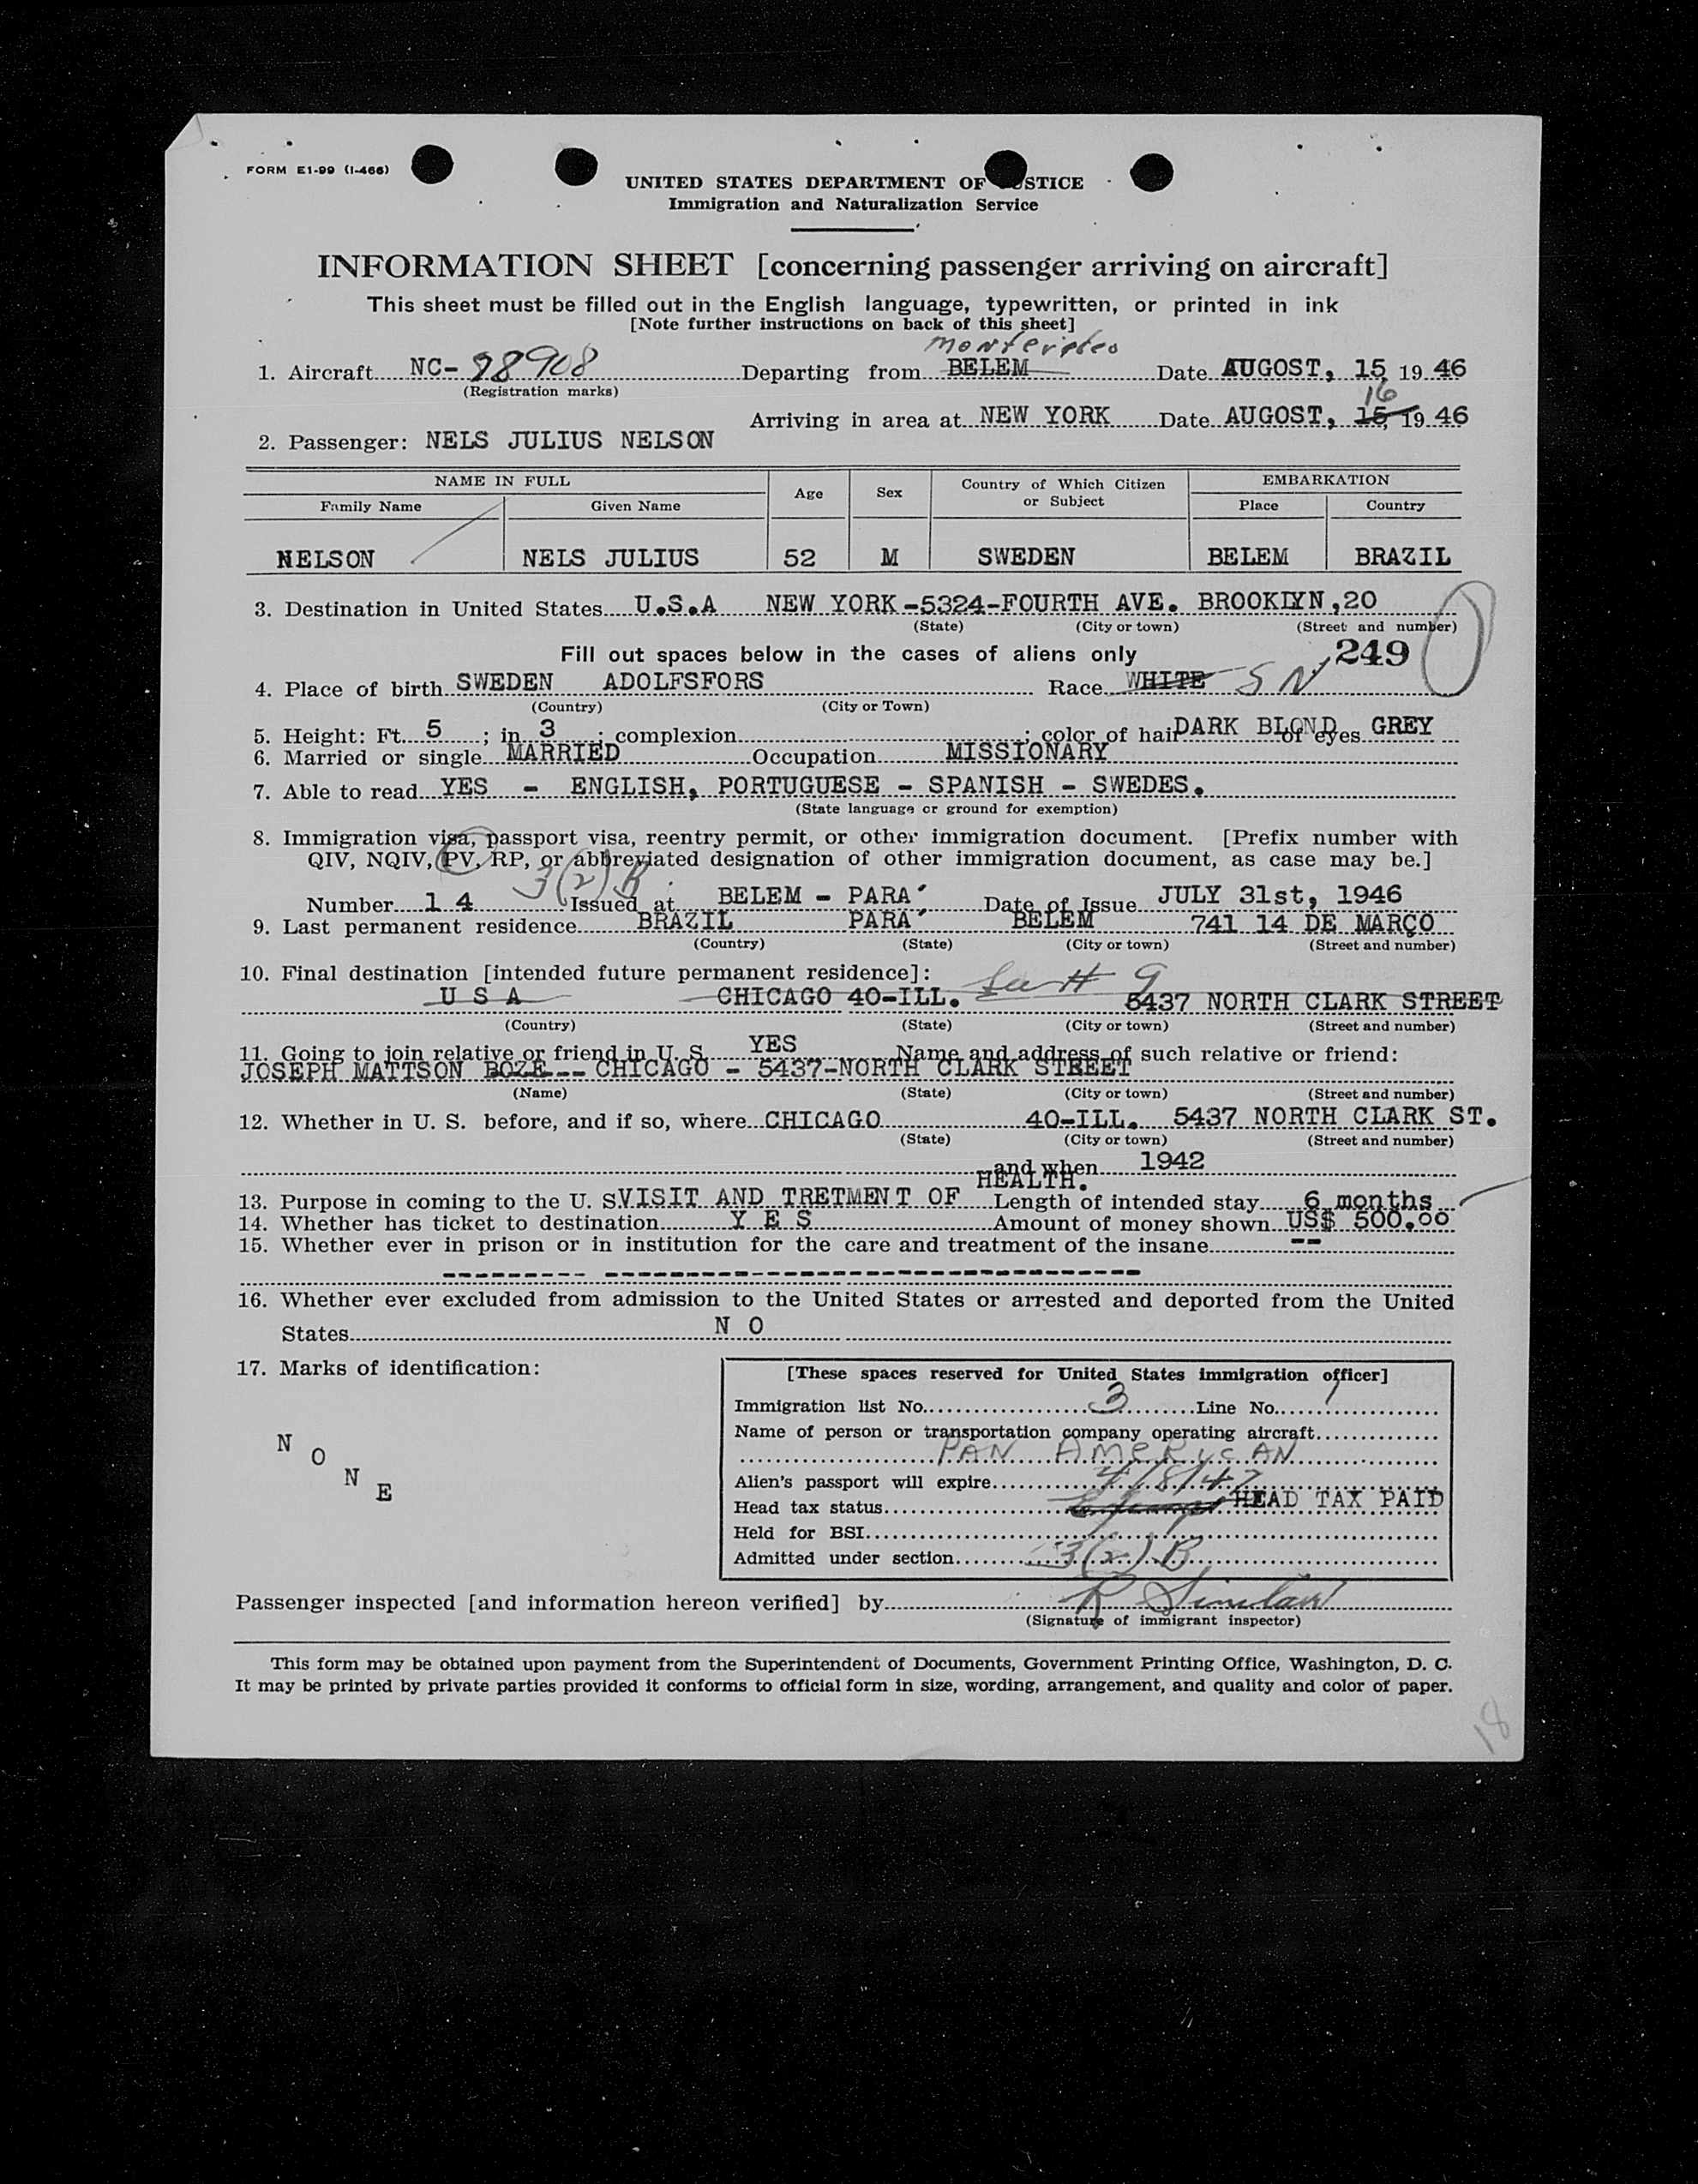 FORM E1-99 (I-466)
UNITED STATES DEPARTMENT OF JUSTICE
Immigration and Naturalization Service
INFORMATION SHEET [concerning passenger arriving on aircraft]
This sheet must be filled out in the English language, typewritten, or printed in ink
[Note further instructions on back of this sheet]
montevideo
1. Aircraft NC- 98908 Departing from BELEM Date AUGOST, 15 19 46
(Registration marks)
16
Arriving in area at NEW YORK Date AUGOST, 15, 19 46
2. Passenger: NELS JULIUS NELSON
NAME IN FULL Age Sex Country of Which Citizen or Subject EMBARKATION
Family Name Given Name Place Country
NELSON NELS JULIUS 52 M SWEDEN BELEM BRAZIL
3. Destination in United States U.S.A NEW YORK-5324-FOURTH AVE. BROOKLYN,20
(State) (City or town) (Street and number)
Fill out spaces below in the cases of aliens only 249
4. Place of birth SWEDEN ADOLFSFORS Race WHITE S N
(Country) (City or Town)
5. Height: Ft. 5 ; in. 3 ; complexion ; color of hair DARK BLOND of eyes GREY
6. Married or single MARRIED Occupation MISSIONARY
7. Able to read YES - ENGLISH, PORTUGUESE - SPANISH - SWEDES.
(State language or ground for exemption)
8. Immigration visa, passport visa, reentry permit, or other immigration document. [Prefix number with
QIV, NQIV, PV, RP, or abbreviated designation of other immigration document, as case may be.]
3(2)B
Number 1 4 Issued at BELEM - PARA' Date of Issue JULY 31st, 1946
9. Last permanent residence BRAZIL PARA' BELEM 741 14 DE MARÇO
(Country) (State) (City or town) (Street and number)
10. Final destination [intended future permanent residece]: See # 9
U S A CHICAGO 40-ILL. 5437 NORTH CLARK STREET
(Country) (State) (City or town) (Street and number)
11. Going to join relative or friend in U. S. YES Name and address of such relative or friend:
JOSEPH MATTSON BOZE-- CHICAGO - 5437-NORTH CLARK STREET
(Name) (State) (City or town) (Street and number)
12. Whether in U. S. before, and if so, where CHICAGO 40-ILL. 5437 NORTH CLARK ST.
(State) (City or town) (Street and number)
and when 1942
HEALTH.
13. Purpose in coming to the U. S. VISIT AND TRETMENT OF Length of intended stay 6 months
14. Whether has ticket to destination Y E S Amount of money shown US$ 500.00
15. Whether ever in prison or in institution for the care and treatment of the insane --
16. Whether ever excluded from admission to the United States or arrested and deported from the United
States N O
17. Marks of identification:
N O N E
[These spaces reserved for United States immigration officer]
Immigration list No. 3 Line No. 1
Name of person or transportation company operating aircraft
PAN AMERICAN
Alien's passport will expire 4/8/47
Head tax status HEAD TAX PAID
Held for BSI
Admitted under section 3(2)B
Passenger inspected [and information hereon verified] by R Sinclair
(Signature of immigrant inspector)
This form may be obtained upon payment from the Superintendent of Documents, Government Printing Office, Washington, D. C.
It may be printed by private parties provided it conforms to official form in size, wording, arrangement, and quality and color of paper.
18